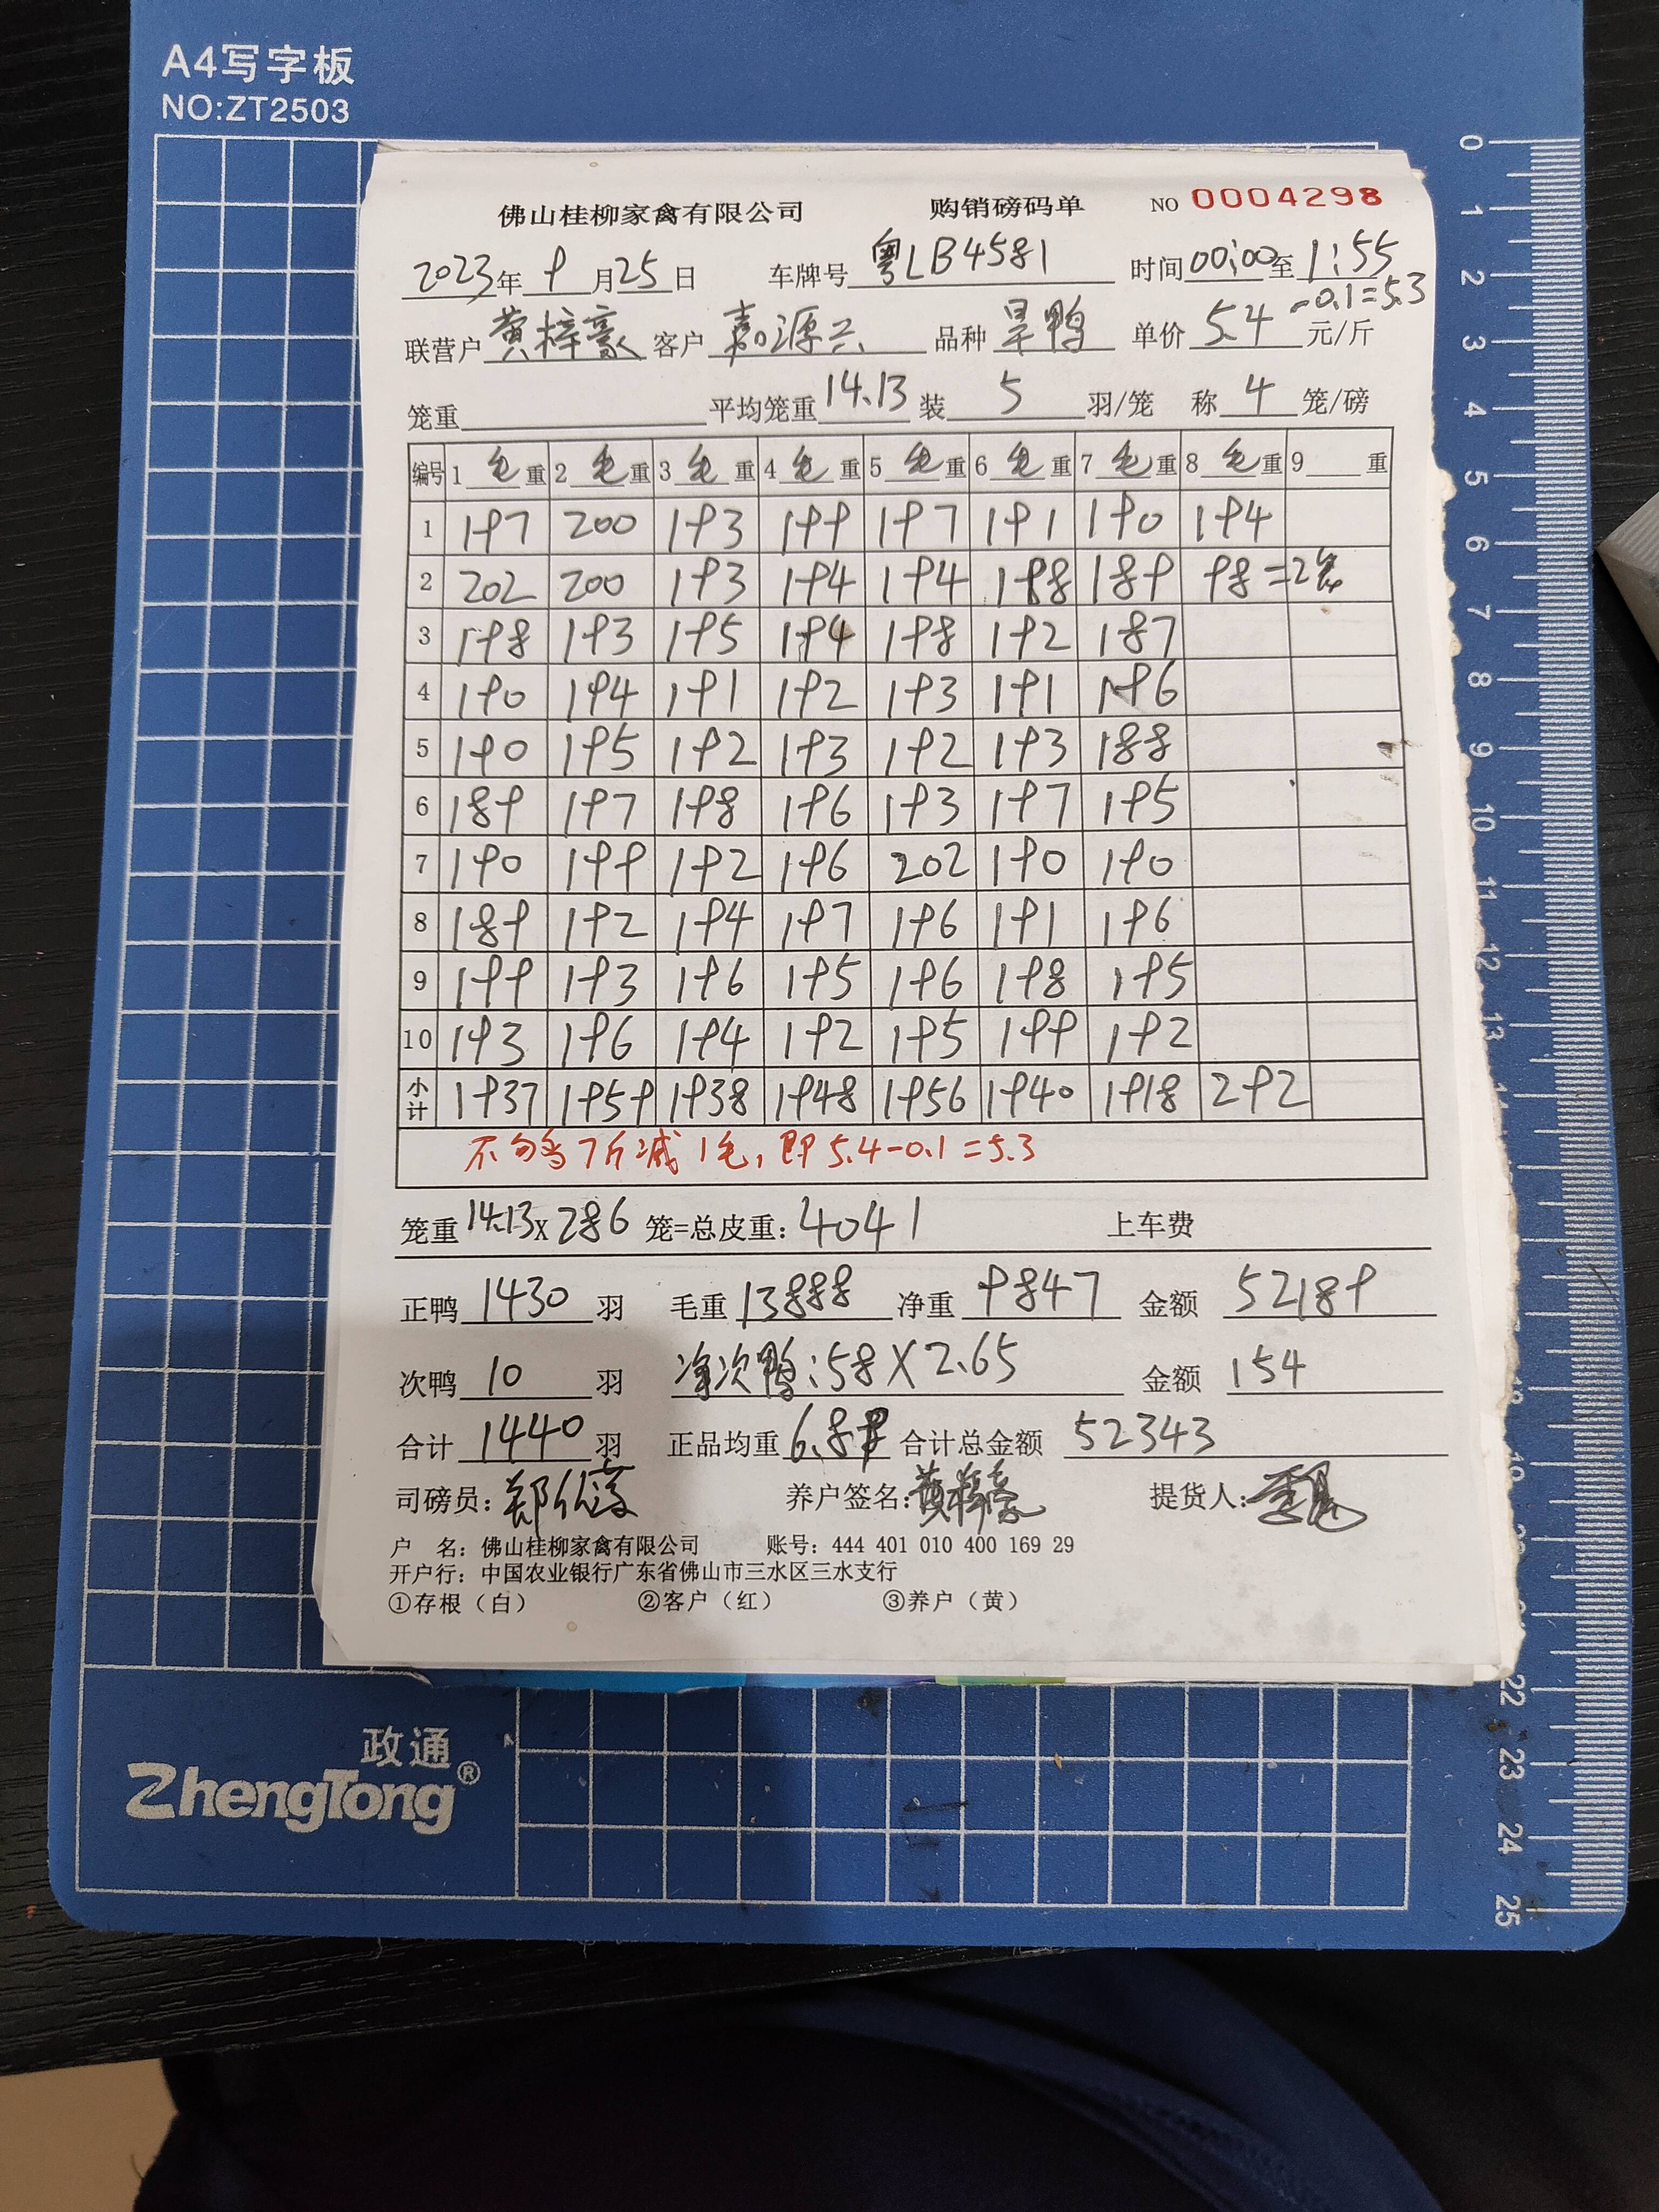 A4写字板
NO:ZT2503
佛山桂柳家禽有限公司 购销磅码单 NO 0004298
2023年 9月25日 车牌号 粤LB4581 时间00:00至1:55
-0.1=5.3
联营户 黄梓豪 客户 嘉源兴 品种 旱鸭 单价 5.4 元/斤
笼重 平均笼重 14.13 装 5 羽/笼 称 4 笼/磅
编号 1 毛重 2 毛重 3 毛重 4 毛重 5 毛重 6 毛重 7 毛重 8 毛重 9 重
1 197 200 193 199 197 191 190 194
2 202 200 193 194 194 188 189 98=2笼
3 198 193 195 194 198 192 187
4 190 194 191 192 193 191 196
5 190 195 192 193 192 193 188
6 189 197 198 196 193 197 195
7 190 199 192 196 202 190 190
8 189 192 194 197 196 191 196
9 199 193 196 195 196 198 195
10 193 196 194 192 195 199 192
小计 1937 1959 1938 1948 1956 1940 1918 292
不匀当7斤减1毛,即5.4-0.1=5.3
笼重14.13X286 笼=总皮重:4041 上车费
正鸭 1430 羽 毛重 13888 净重 9847 金额 52189
次鸭 10 羽 净次鸭:58X2.65 金额 154
合计 1440 羽 正品均重 6.89 合计总金额 52343
司磅员: 养户签名:黄梓豪 提货人:
户 名:佛山桂柳家禽有限公司 账号:444 401 010 400 169 29
开户行:中国农业银行广东省佛山市三水区三水支行
①存根(白) ②客户(红) ③养户(黄)
政通
ZhengTong®
0
1
2
3
4
5
6
7
8
9
10
11
12
13
18
19
22
23
24
25